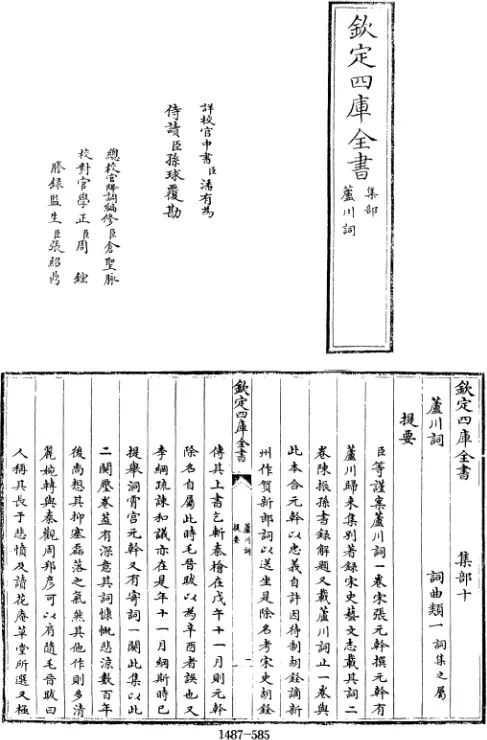 欽定四庫全書
集部
蘆川詞
詳校官中書臣潘有為
侍讀臣孫球覆勘
總校官降調編修臣倉聖脈
校對官學正臣周鋐
謄錄監生臣張紹
欽定四庫全書
集部十
蘆川詞
詞曲類一
詞集之屬
提要
臣等謹案蘆川詞一卷宋張元幹撰元幹有
蘆川歸來集別著錄宋史藝文志載其詞二
卷陳振孫書錄解題又載蘆川詞止一卷與
此本合元幹以忠義自許因待制胡銓謫新
州作賀新郎詞以送坐是除名考宋史胡銓
欽定四庫全書
蘆川詞
提要
一
傳其上書乞斬秦檜在戊午十一月則元幹
除名自屬此時毛晉跋以為辛酉者誤也又
李綱疏諫和議亦在是年十一月綱斯時已
提舉洞霄宮元幹又有寄詞一闋此集以此
二闋壓卷蓋有深意其詞慷慨悲涼數百年
後尚想其抑塞磊落之氣然其他作則多清
麗婉轉與秦觀周邦彥可以肩隨毛晉跋曰
人稱其長于悲憤及讀花庵草堂所選又極
1487-585